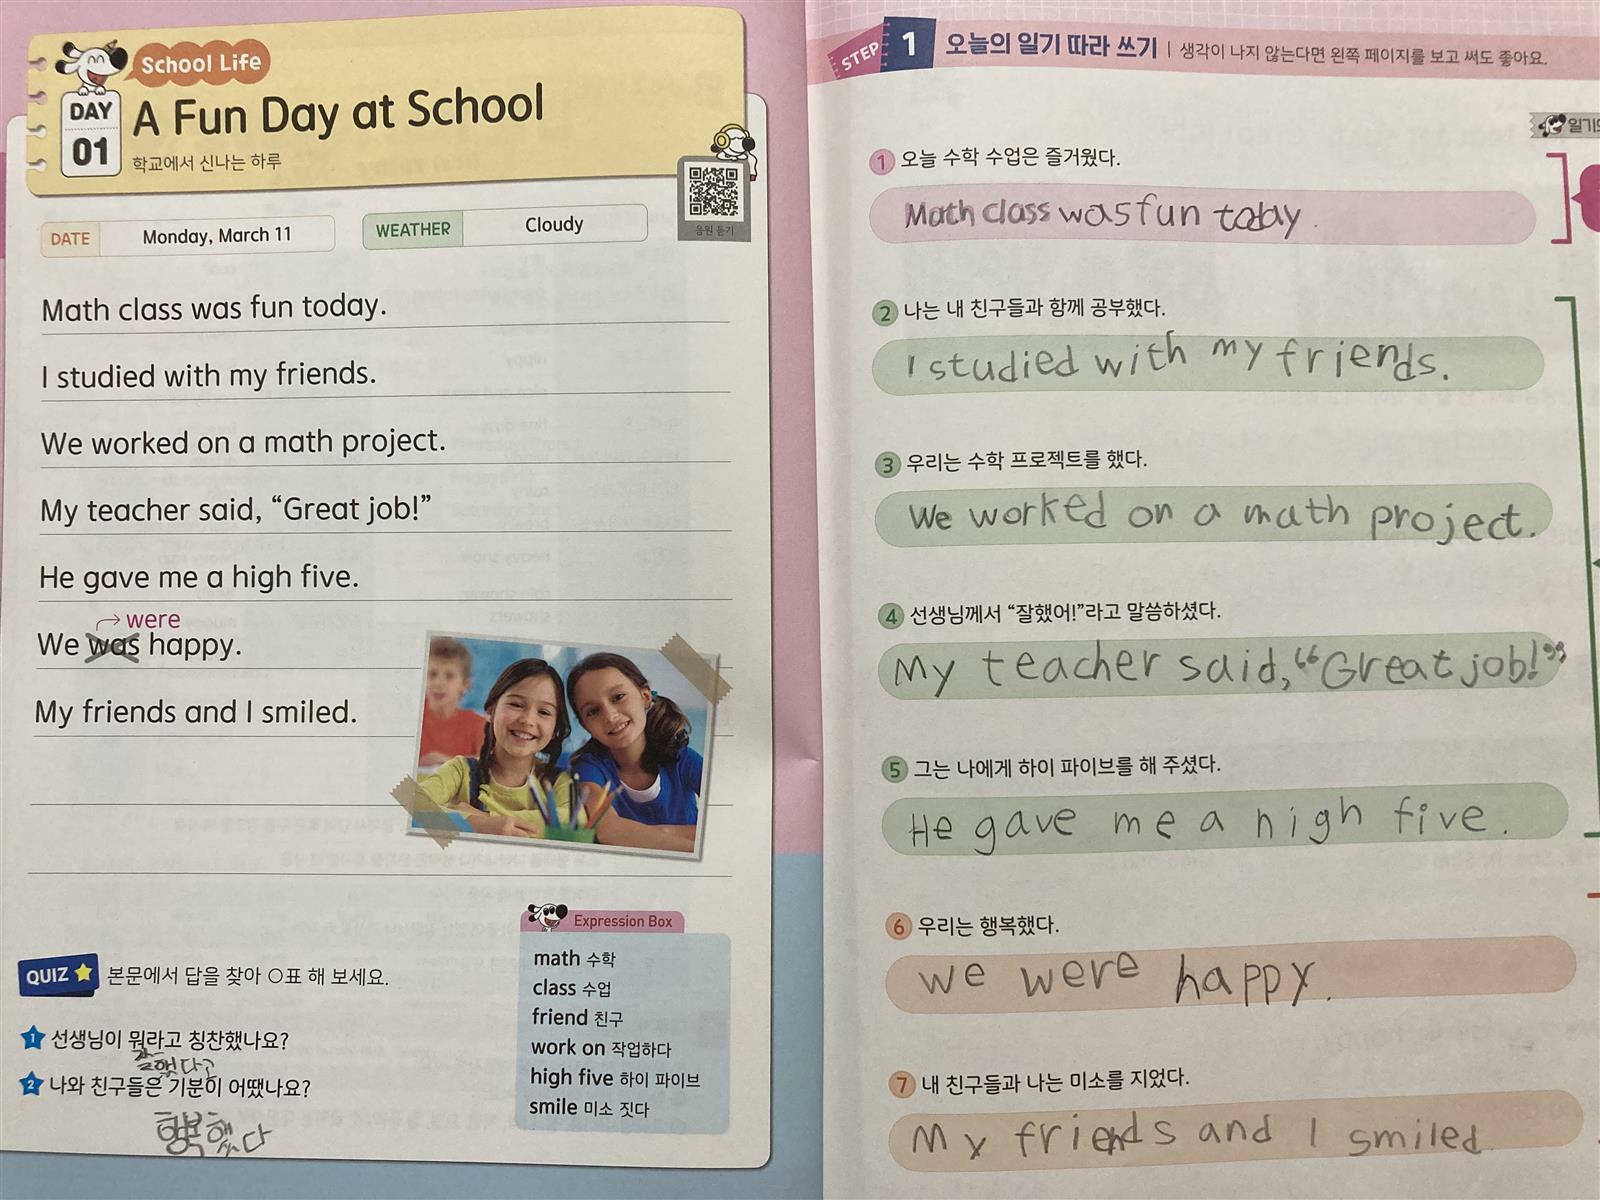 School Life
DAY
01
A Fun Day at School
학교에서 신나는 하루
음원 듣기
DATE
Monday, March 11
WEATHER
Cloudy
Math class was fun today.
I studied with my friends.
We worked on a math project.
My teacher said, “Great job!”
He gave me a high five.
were
We was happy.
My friends and I smiled.
QUIZ
본문에서 답을 찾아 ○표 해 보세요.
1 선생님이 뭐라고 칭찬했나요?
잘했다?
2 나와 친구들은 기분이 어땠나요?
행복했다
Expression Box
math 수학
class 수업
friend 친구
work on 작업하다
high five 하이 파이브
smile 미소 짓다
STEP 1 오늘의 일기 따라 쓰기 | 생각이 나지 않는다면 왼쪽 페이지를 보고 써도 좋아요.
1 오늘 수학 수업은 즐거웠다.
Math class was fun today.
2 나는 내 친구들과 함께 공부했다.
I studied with my friends.
3 우리는 수학 프로젝트를 했다.
We worked on a math project.
4 선생님께서 “잘했어!”라고 말씀하셨다.
My teacher said, “Great job!”
5 그는 나에게 하이 파이브를 해 주셨다.
He gave me a high five.
6 우리는 행복했다.
we were happy.
7 내 친구들과 나는 미소를 지었다.
My friends and I smiled